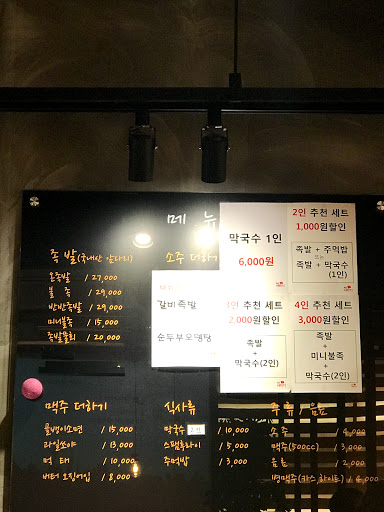 메 뉴
족 발(국내산 앞다리)
온족발 / 27,000
불 족 / 29,000
반반족발 / 29,000
미니불족 / 15,000
족발쫄회 / 20,000
소주 더하기
갈비족발
순두부오뎅탕
막국수 1인
6,000원
2인 추천 세트
1,000원할인
족발 + 주먹밥
또는
족발 + 막국수
(1인)
3인 추천 세트
2,000원할인
족발
+
막국수(2인)
4인 추천 세트
3,000원할인
족발
+
미니불족
+
막국수(2인)
맥주 더하기
골뱅이소면 / 15,000
라일쏘야 / 13,000
먹 태 / 10,000
버터 오징어입 / 8,000
식사류
막국수 2인 / 10,000
스팸후라이 / 5,000
주먹밥 / 3,000
주 류 / 음료
소 주 / 4,000
맥주(500cc) / 3,000
음 료 / 2,000
병맥주(카스 하이트) / 4,000